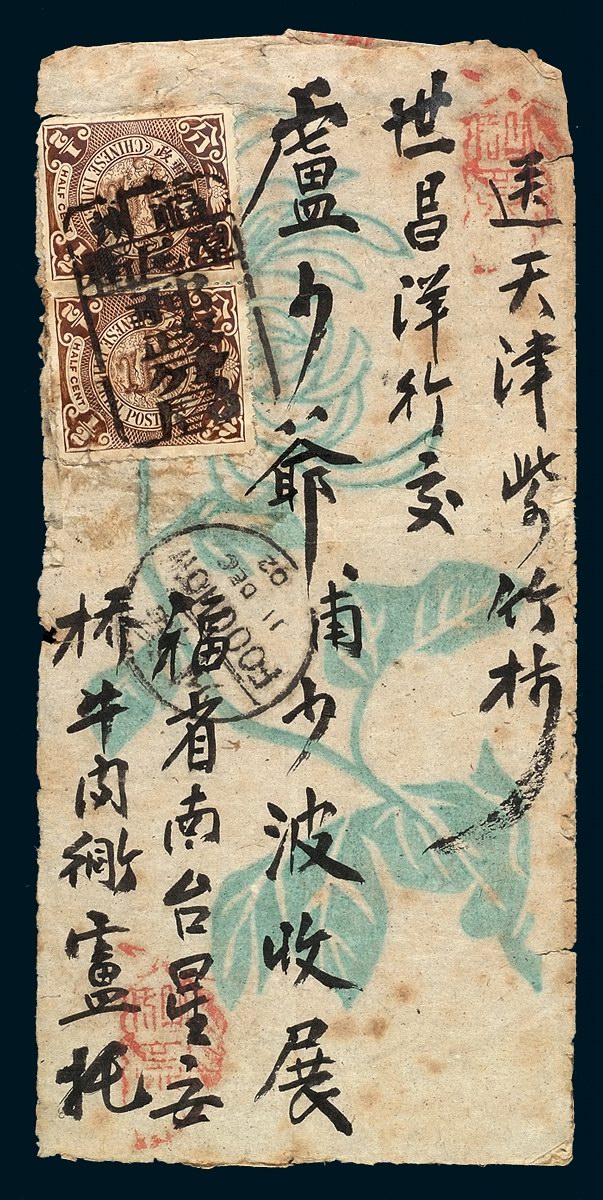 送天津紫竹林
世昌洋行交
盧少爺甫少波收展
福省南台星安
橋牛肉衕盧托
CHINESE IMPERIAL POST
HALF CENT
1/2
分
CHINESE IMPERIAL POST
HALF CENT
1/2
FOOCHOW
11 DEC
02